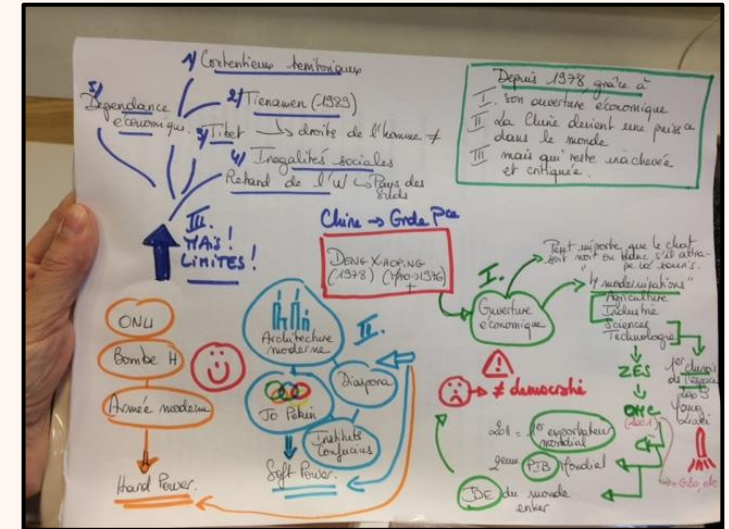 1/ Contentieux territoriaux
5/ Dépendance
économique.
2/ Tienamen (1989)
3/ Tibet → droits de l'homme ≠
4/ Inégalités sociales
Retard de l'W → Pays des
III.
MAIS!
LIMITES!
Depuis 1978, grâce à
I. son ouverture économique
II la Chine devient une puissce
dans le monde
III mais qui reste inachevée
et critiquée.
Chine → Grde Pce
DENG XIAOPING
(1978)
I.
Ouverture
économique
Peut importe que le chat
soit noir ou blanc s'il attra-
pe la souris.
"4 modernisations"
Agriculture
Industrie
Sciences
Technologie
ZES
OMC
(2001)
1er chinois
de l'espace
2003
Yang
Liwei
+ G20, etc
≠ démocratie
2011 = 1er exportateur
mondial
2eme PIB mondial
du monde
entier
II.
Architecture
moderne
Diaspora
JO Pékin
Instituts
Confucius
Soft Power.
ONU
Bombe H
Armée moderne
Hard Power.